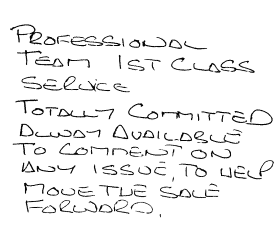 PROFESSIONAL
TEAM 1ST CLASS
SERVICE
TOTALLY COMMITTED
ALWAY AVAILABLE
TO COMMENT ON
ANY ISSUE, TO HELP
MOVE THE SALE
FORWARD.